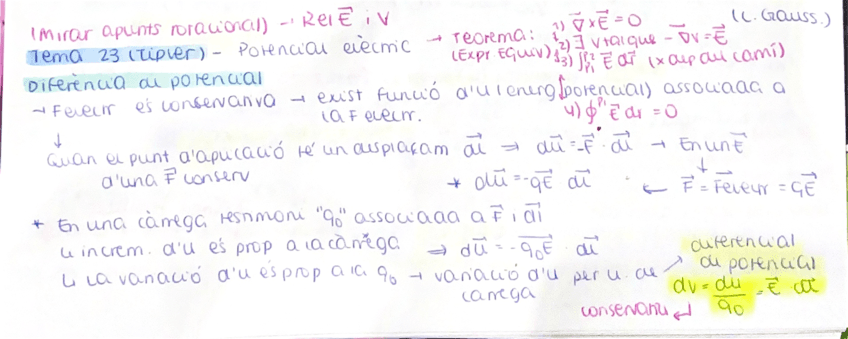 (Mirar apunts rotacional) → Rel E⃗ i V
(L. Gauss.)
Tema 23 (Tipler) - Potencial elèctric → Teorema: 1) ∇⃗ x E⃗ = 0
(Expr Equiv) 2) ∃ V tal que - ∇⃗V = E⃗
3) ∫ E⃗ dl⃗ (x cap al camí)
4) ∮ E⃗ dl = 0
Diferència de potencial
→ F elect és conservativa → exist funció d'U (energ potencial) associada a
la F elect.
↓
Quan el punt d'aplicació té un desplaçam dl⃗ ⇒ du⃗ = -F⃗ · dl⃗ → En un E⃗
d'una F⃗ conserv
* du⃗ = -qE⃗ dl⃗ ← F⃗ = F⃗elect = qE⃗
* En una càrrega testimoni "q₀" associada a F⃗ i dl⃗
L'increm. d'U és prop a la càrrega ⇒ du⃗ = -q₀E⃗ · dl⃗
↳ La variació d'U és prop a la q₀ → variació d'U per u. de
càrrega
diferencial
de potencial
dV = du/q₀ = E⃗ dl⃗
conservatiu ↵